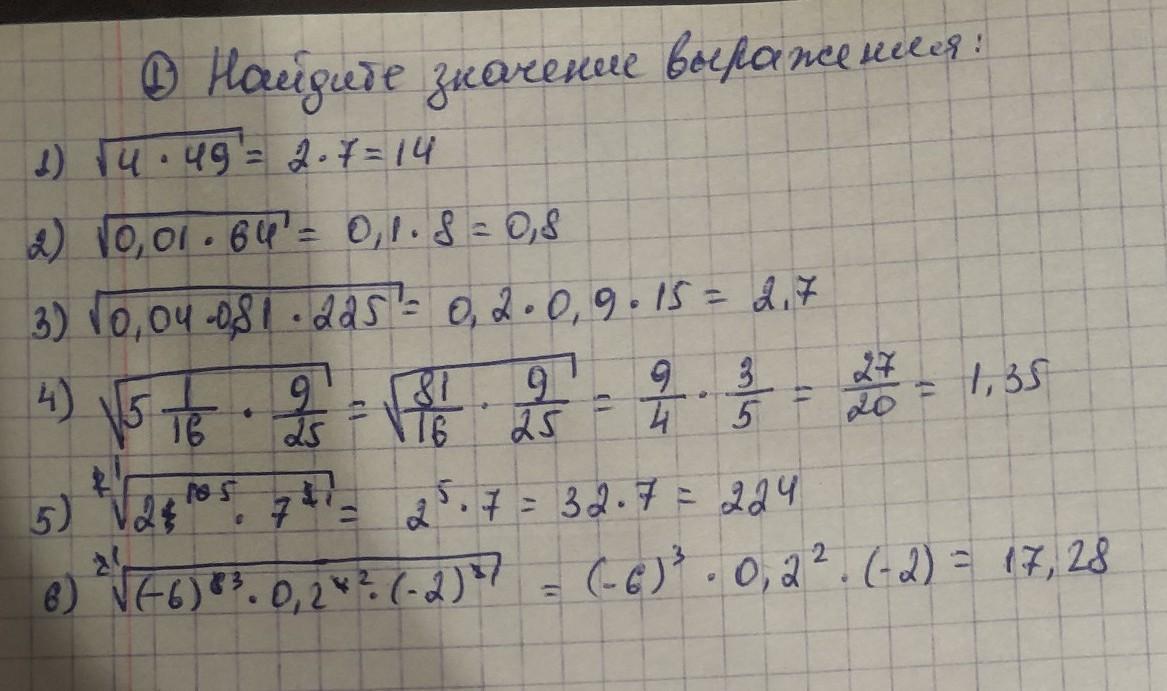 ① Найдите значение выражения:
1) √4 · 49 = 2 · 7 = 14
2) √0,01 · 64 = 0,1 · 8 = 0,8
3) √0,04 · 0,81 · 225 = 0,2 · 0,9 · 15 = 2,7
4) √5 1/16 · 9/25 = √81/16 · 9/25 = 9/4 · 3/5 = 27/20 = 1,35
5) √2¹⁰ ⁵ · 7² ¹ = 2⁵ · 7 = 32 · 7 = 224
6) √(-6)⁶ ³ · 0,2⁴ ² · (-2)² ¹ = (-6)³ · 0,2² · (-2) = 17,28